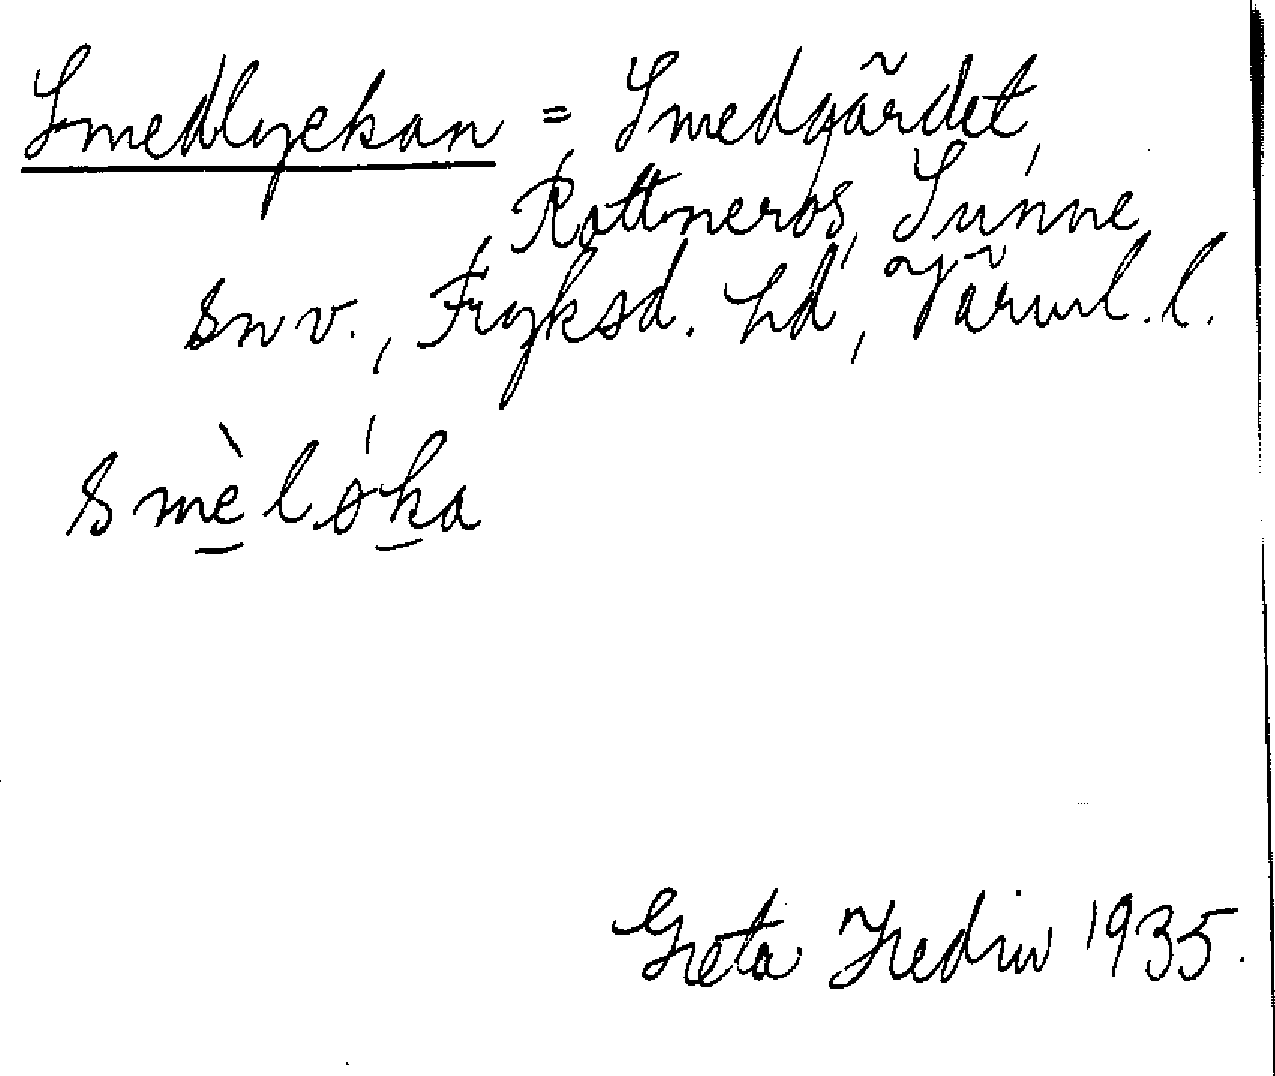 Smedlyckan = Smedgärdet,
Rottneros, Sunne
snv., Fryksd. hd, Värml. l.
smèløka
Greta Hedin 1935.